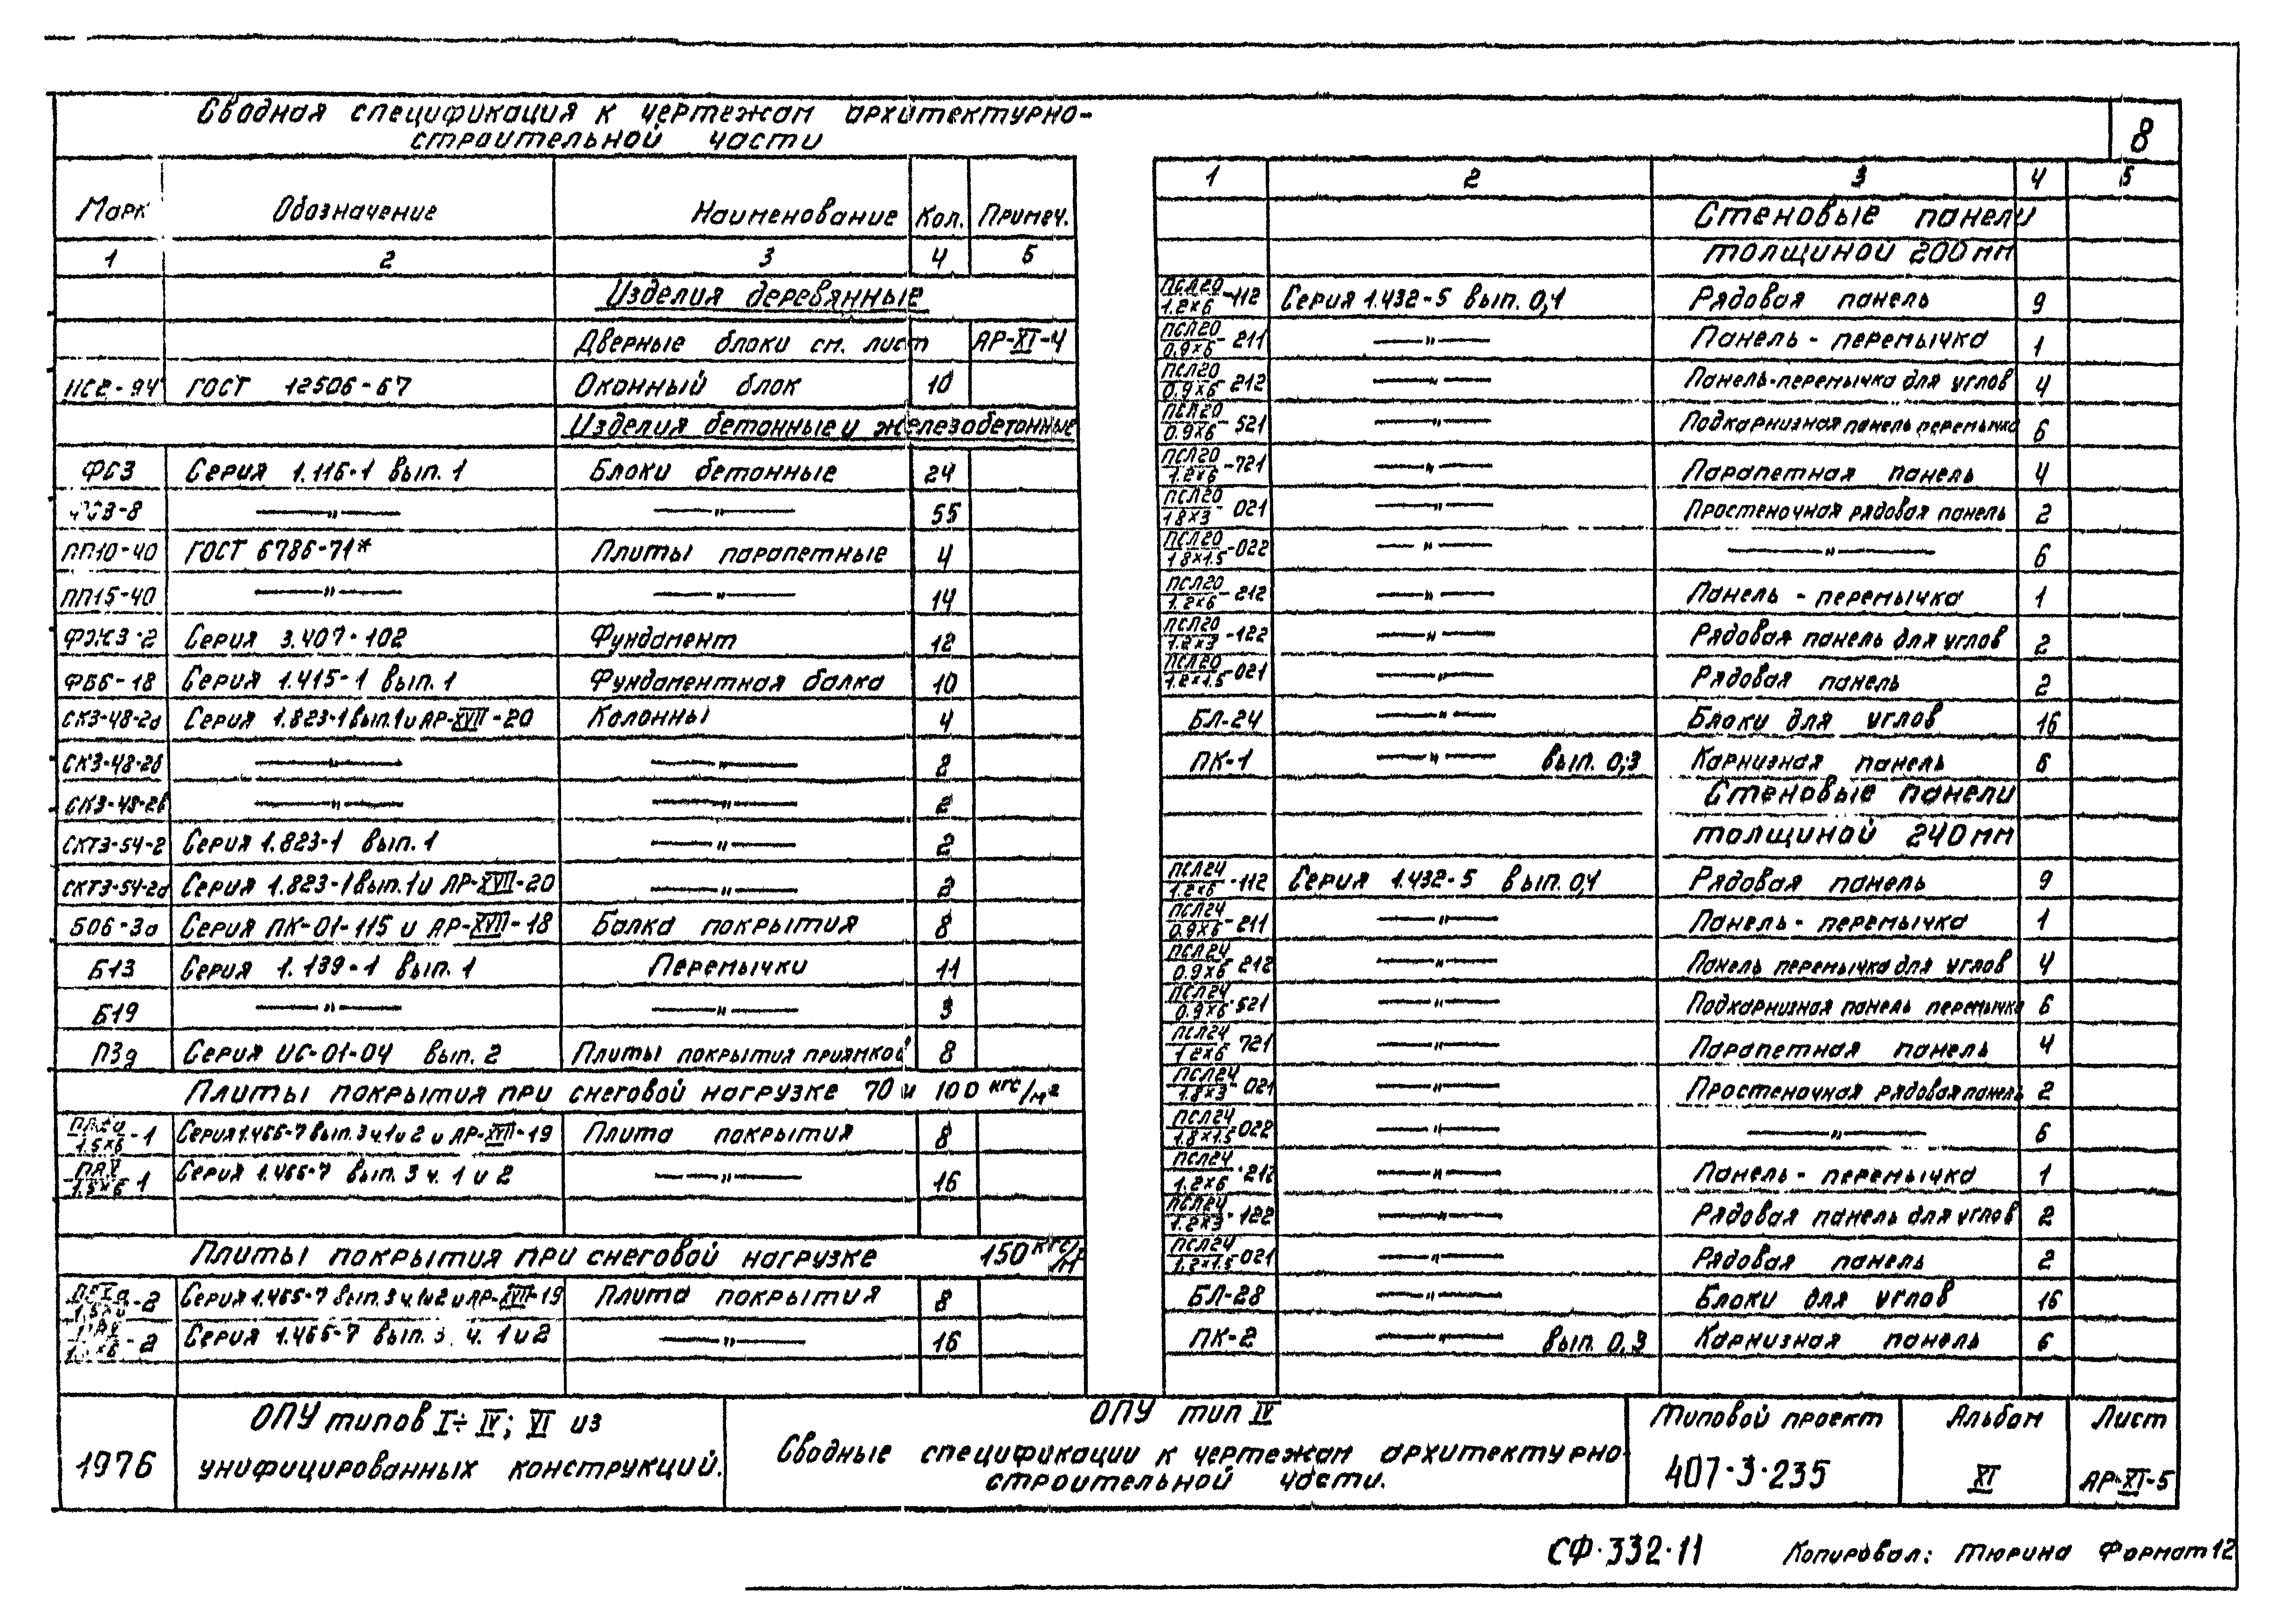 Сводная спецификация к чертежам архитектурно-
строительной части
8
Марк Обозначение Наименование Кол. Примеч.
1 2 3 4 5
Изделия деревянные
Дверные блоки см. лист АР-XI-4
НС2-94 ГОСТ 12506-67 Оконный блок 10
Изделия бетонные и железобетонные
ФС3 Серия 1.116-1 вып. 1 Блоки бетонные 24
ФС3-8 —"— —"— 55
ПП10-40 ГОСТ 6786-71* Плиты парапетные 4
ПП15-40 —"— —"— 14
ФЖ3-2 Серия 3.407-102 Фундамент 12
ФБ6-18 Серия 1.415-1 вып. 1 Фундаментная балка 10
СК3-48-2а Серия 1.823-1 вып. 1 и АР-XVII-20 Колонны 4
СК3-48-2б —"— —"— 8
СК3-48-2в —"— —"— 2
СКТ3-54-2 Серия 1.823-1 вып. 1 —"— 2
СКТ3-54-2а Серия 1.823-1 вып. 1 и АР-XVII-20 —"— 2
Б06-3а Серия ПК-01-115 и АР-XVII-18 Балка покрытия 8
Б13 Серия 1.139-1 вып. 1 Перемычки 11
Б19 —"— —"— 3
П3д Серия ИС-01-04 вып. 2 Плиты покрытия приямков 8
Плиты покрытия при снеговой нагрузке 70 и 100 кгс/м²
1.5×6 -1 Серия 1.465-7 вып. 3 ч. 1 и 2 и АР-XVII-19 Плита покрытия 8
1.5×6 -1 Серия 1.465-7 вып. 3 ч. 1 и 2 —"— 16
Плиты покрытия при снеговой нагрузке 150 кгс/м
-2 Серия 1.465-7 вып. 3 ч. 1 и 2 и АР-XVII-19 Плита покрытия 8
-2 Серия 1.465-7 вып. 3 ч. 1 и 2 —"— 16
1 2 3 4 5
Стеновые панели
толщиной 200 мм
ПСЛ20/1.2×6 -112 Серия 1.432-5 вып. 0,1 Рядовая панель 9
ПСЛ20/0.9×6 -211 —"— Панель-перемычка 1
ПСЛ20/0.9×6 -212 —"— Панель-перемычка для углов 4
ПСЛ20/0.9×6 -521 —"— Подкарнизная панель перемычка 6
ПСЛ20/1.2×6 -721 —"— Парапетная панель 4
ПСЛ20/1.8×3 -021 —"— Простеночная рядовая панель 2
ПСЛ20/1.8×1.5 -022 —"— —"— 6
ПСЛ20/1.2×6 -212 —"— Панель-перемычка 1
ПСЛ20/1.2×3 -122 —"— Рядовая панель для углов 2
ПСЛ20/1.2×1.5 -021 —"— Рядовая панель 2
БЛ-24 —"— Блоки для углов 16
ПК-1 —"— вып. 0,3 Карнизная панель 6
Стеновые панели
толщиной 240 мм
ПСЛ24/1.2×6 -112 Серия 1.432-5 вып. 0,1 Рядовая панель 9
ПСЛ24/0.9×6 -211 —"— Панель-перемычка 1
ПСЛ24/0.9×6 -212 —"— Панель перемычка для углов 4
ПСЛ24/0.9×6 -521 —"— Подкарнизная панель перемычка 6
ПСЛ24/1.2×6 721 —"— Парапетная панель 4
ПСЛ24/1.8×3 -021 —"— Простеночная рядовая панель 2
ПСЛ24/1.8×1.5 -022 —"— —"— 6
ПСЛ24/1.2×6 -212 —"— Панель-перемычка 1
ПСЛ24/1.2×3 -122 —"— Рядовая панель для углов 2
ПСЛ24/1.2×1.5 -021 —"— Рядовая панель 2
БЛ-28 —"— Блоки для углов 16
ПК-2 —"— вып. 0,3 Карнизная панель 6
1976
ОПУ типов I÷IV; VI из
унифицированных конструкций.
ОПУ тип IV
Сводные спецификации к чертежам архитектурно-
строительной части.
Типовой проект
407-3-235
Альбом
XI
Лист
АР-XI-5
СФ-332-11 Копировал: Тюрина Формат 12